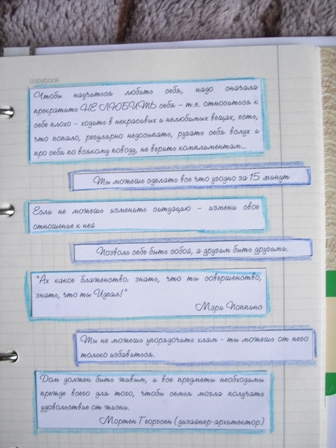 copybook
Чтобы научиться любить себя, надо сначала
прекратить НЕ ЛЮБИТЬ себя - т.е. относиться к
себе плохо - ходить в некрасивых и нелюбимых вещах, есть,
что попало, регулярно недосыпать, ругать себя вслух и
про себя по всякому поводу, не верить комплиментам...
Ты можешь сделать все что угодно за 15 минут
Если не можешь изменить ситуацию - измени свое
отношение к ней
Позволь себе быть собой, а другим быть другими.
"Ах какое блаженство, знать, что ты совершенство,
знать, что ты Идеал!"
Мэри Поппинс
Ты не можешь упорядочить хлам - ты можешь от него
только избавиться.
Дом должен быть живым, и все предметы необходимы
прежде всего для того, чтобы семья могла получать
удовольствие от жизни.
Мортен Георгсен (дизайнер-архитектор)